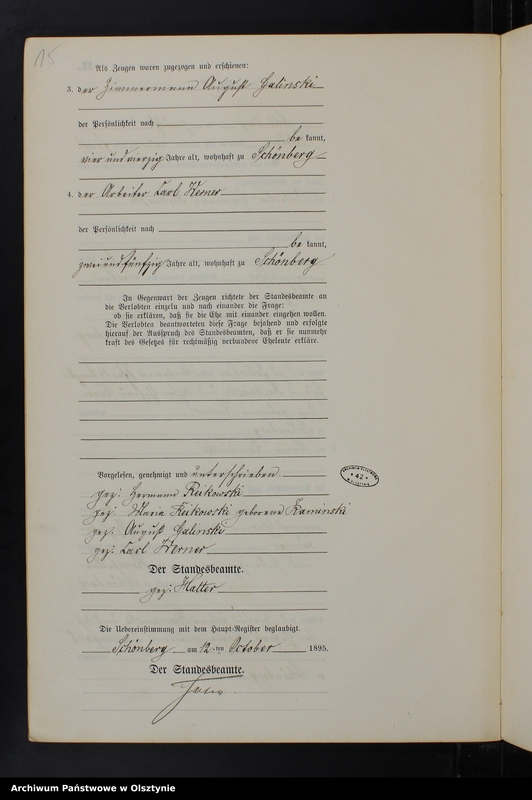 15
Als Zeugen waren zugezogen und erschienen:
3. der Zimmermann August Galinski
der Persönlichkeit nach
be kannt,
vier und vierzig Jahre alt, wohnhaft zu Schönberg
4. der Arbeiter Carl Werner
der Persönlichkeit nach
be kannt,
zwei und fünfzig Jahre alt, wohnhaft zu Schönberg
In Gegenwart der Zeugen richtete der Standesbeamte an
die Verlobten einzeln und nach einander die Frage:
ob sie erklären, daß sie die Ehe mit einander eingehen wollen.
Die Verlobten beantworteten diese Frage bejahend und erfolgte
hierauf der Ausspruch des Standesbeamten, daß er sie nunmehr
kraft des Gesetzes für rechtmäßig verbundene Eheleute erkläre.
Vorgelesen, genehmigt und unterschrieben
gez: Hermann Reikowski
gez: Maria Reikowski geborene Kaminski
gez: August Galinski
gez: Carl Werner
Der Standesbeamte.
gez: Halter
Die Uebereinstimmung mit dem Haupt-Register beglaubigt.
Schönberg am 12 ten October 1895.
Der Standesbeamte.
42
Archiwum Państwowe w Olsztynie